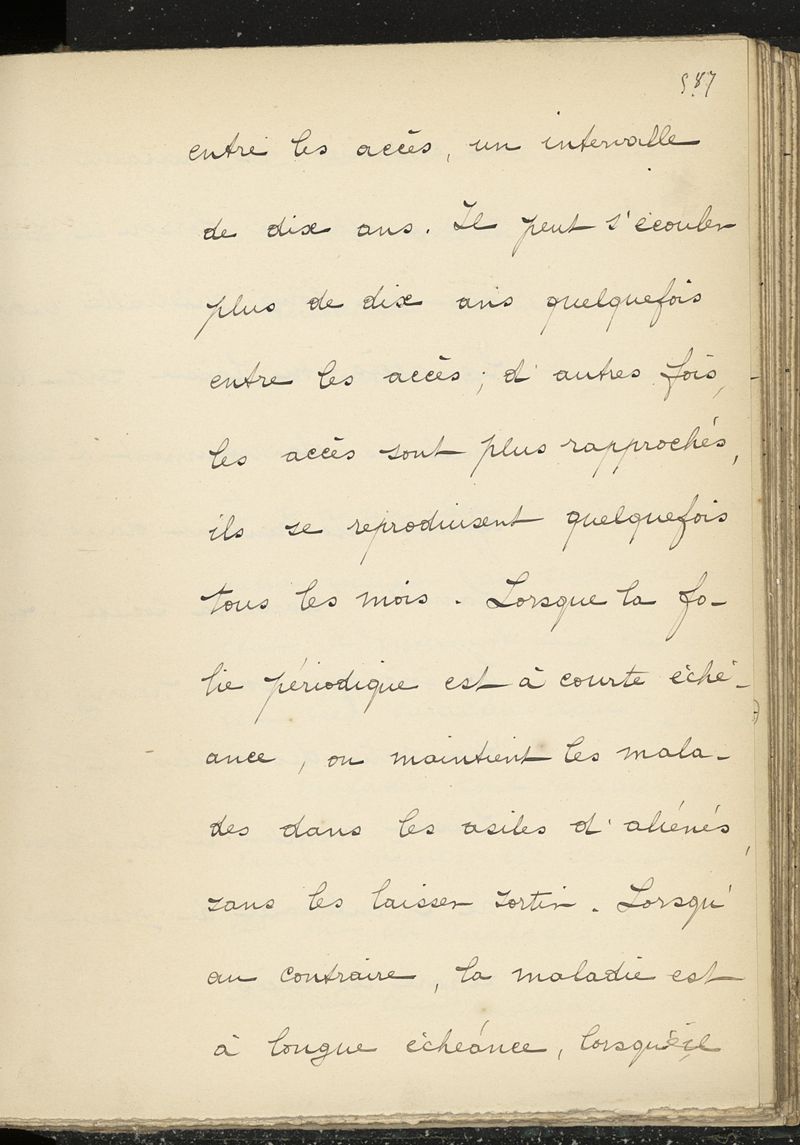 587
entre les accès, un intervalle
de dix ans. Il peut s'écouler
plus de dix ans quelquefois
entre les accès ; d'autres fois,
les accès sont plus rapprochés,
ils se reproduisent quelquefois
tous les mois. Lorsque la fo-
lie périodique est à courte éché-
ance, on maintient les mala-
des dans les asiles d'aliénés,
sans les laisser sortir. Lorsqu'
au contraire, la maladie est
à longue échéance, lorsqu'il